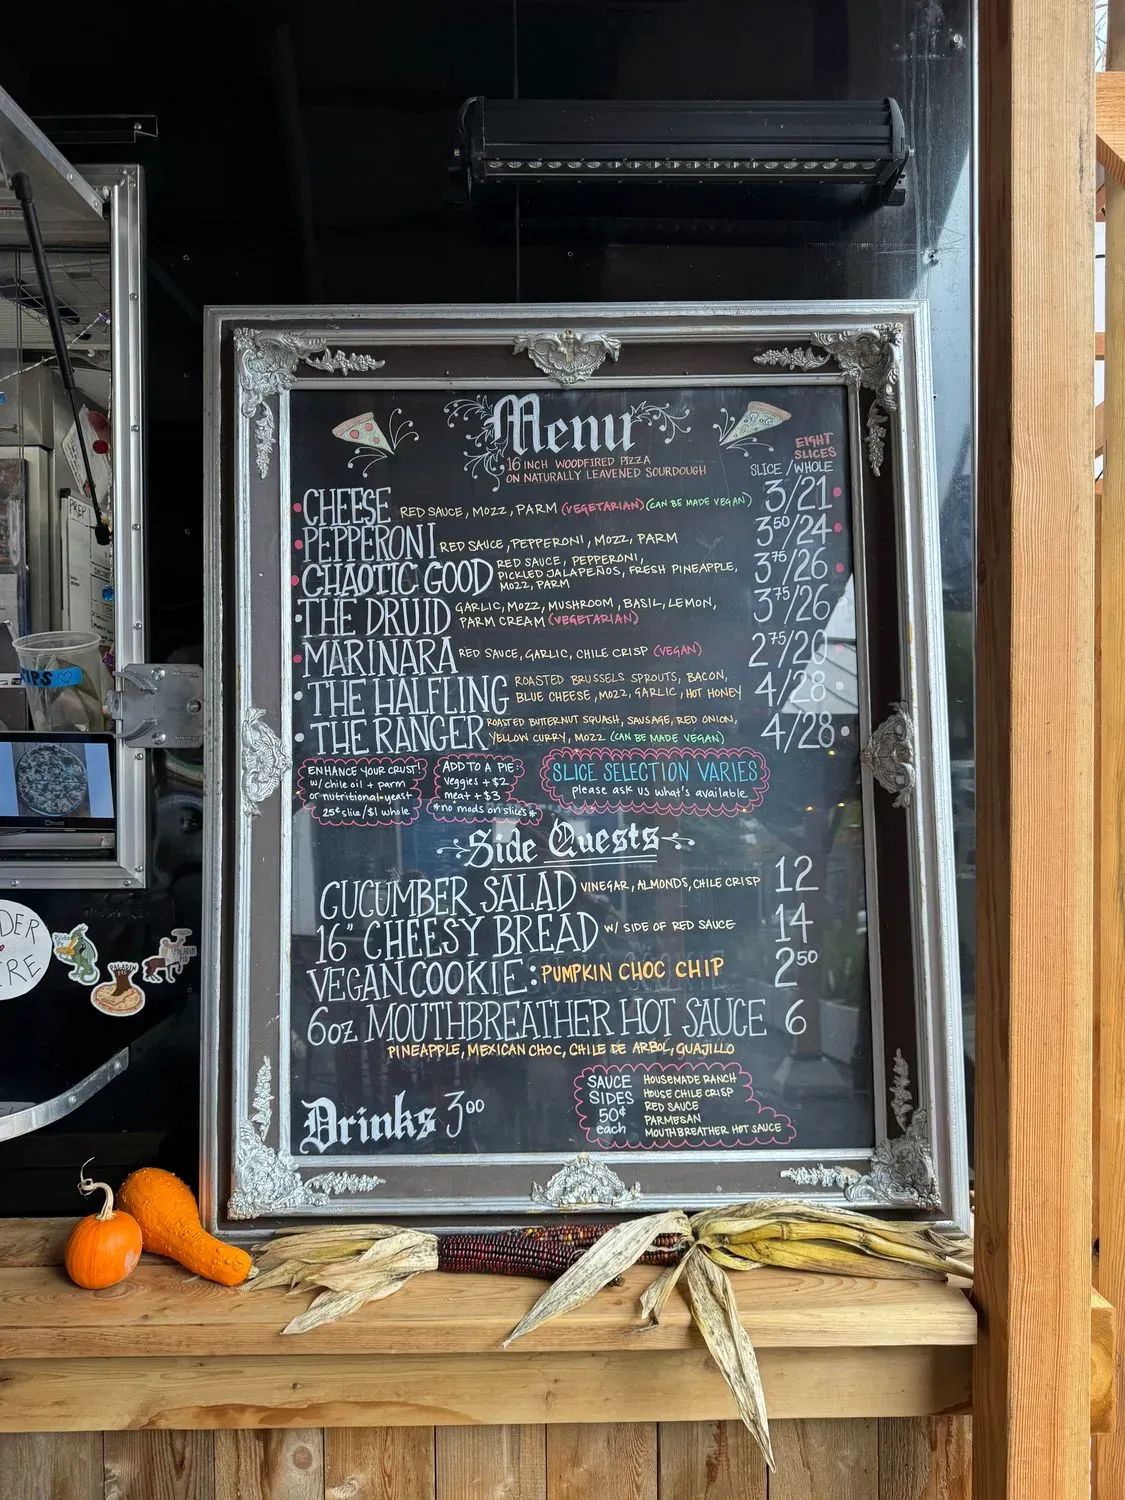 Menu
16 INCH WOODFIRED PIZZA
ON NATURALLY LEAVENED SOURDOUGH
EIGHT
SLICES
SLICE / WHOLE
CHEESE RED SAUCE, MOZZ, PARM (VEGETARIAN) (CAN BE MADE VEGAN) 3/21
PEPPERONI RED SAUCE, PEPPERONI, MOZZ, PARM 3⁵⁰/24
CHAOTIC GOOD RED SAUCE, PEPPERONI,
PICKLED JALAPEÑOS, FRESH PINEAPPLE,
MOZZ, PARM 3⁷⁵/26
THE DRUID GARLIC, MOZZ, MUSHROOM, BASIL, LEMON,
PARM CREAM (VEGETARIAN) 3⁷⁵/26
MARINARA RED SAUCE, GARLIC, CHILE CRISP (VEGAN) 2⁷⁵/20
THE HALFLING ROASTED BRUSSELS SPROUTS, BACON,
BLUE CHEESE, MOZZ, GARLIC, HOT HONEY 4/28
THE RANGER ROASTED BUTTERNUT SQUASH, SAUSAGE, RED ONION,
YELLOW CURRY, MOZZ (CAN BE MADE VEGAN) 4/28
ENHANCE YOUR CRUST!
w/ chile oil + parm
or nutritional yeast
25¢ slice/$1 whole
ADD TO A PIE:
veggies + $2
meat + $3
*no mods on slices*
SLICE SELECTION VARIES
please ask us what's available
Side Quests
CUCUMBER SALAD VINEGAR, ALMONDS, CHILE CRISP 12
16" CHEESY BREAD W/ SIDE OF RED SAUCE 14
VEGAN COOKIE: PUMPKIN CHOC CHIP 2⁵⁰
6oz MOUTHBREATHER HOT SAUCE 6
PINEAPPLE, MEXICAN CHOC, CHILE DE ARBOL, GUAJILLO
Drinks 3⁰⁰
SAUCE
SIDES
50¢
each
HOUSEMADE RANCH
HOUSE CHILE CRISP
RED SAUCE
PARMESAN
MOUTHBREATHER HOT SAUCE
PREP
TIPS
DER
RE
PALADIN
PIE